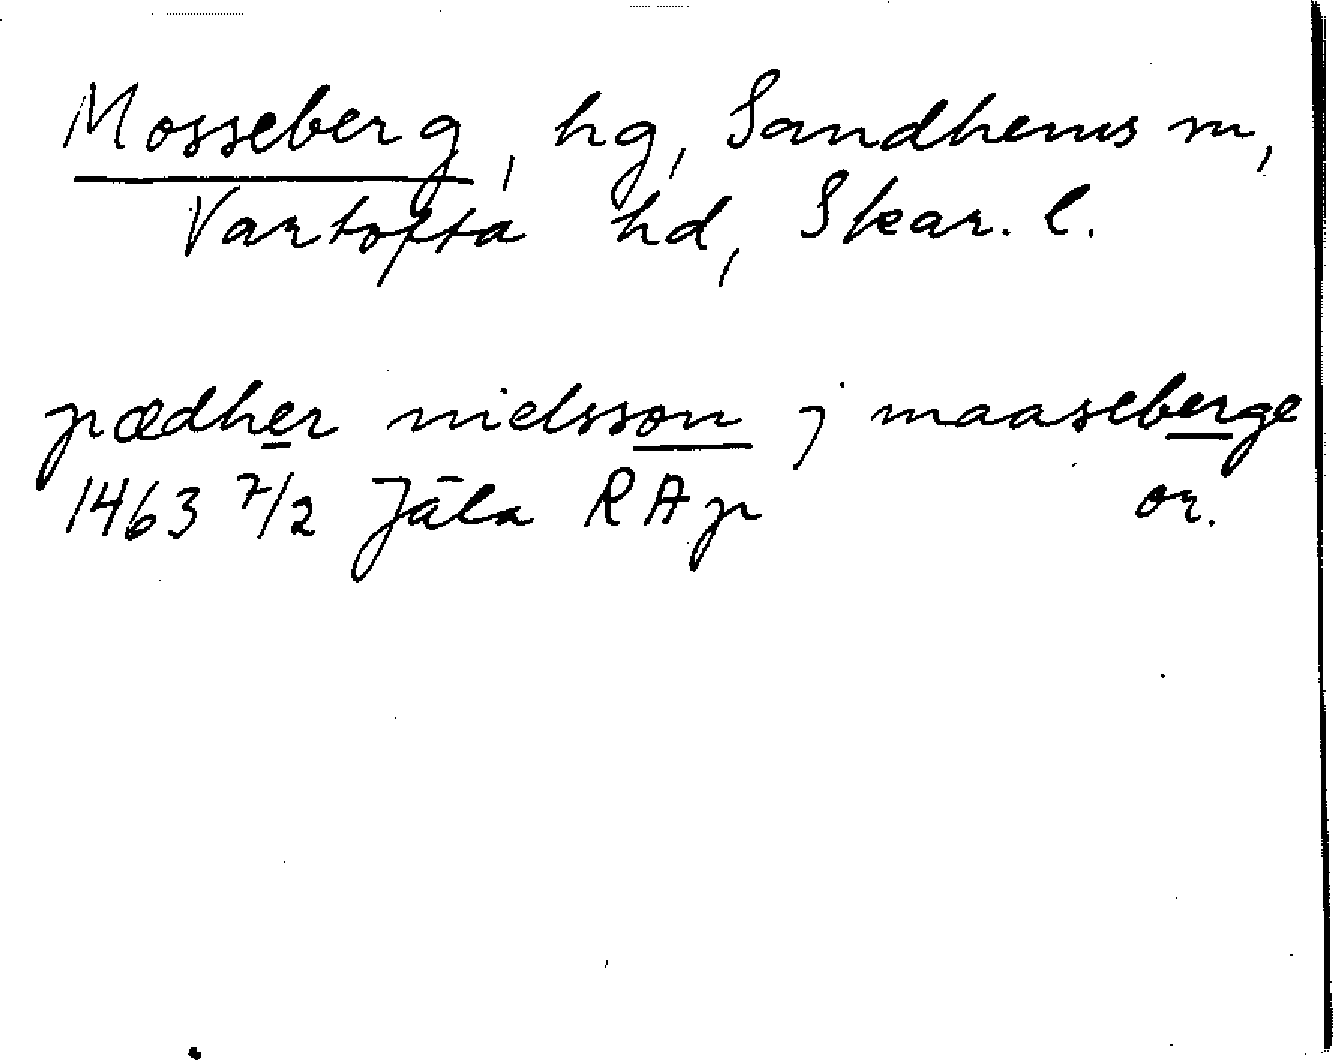 Mosseberg, hg, Sandhems sn,
Vartofta hd, Skar. l.
pædher nielsson j maaseberge
1463 7/2 Jäla RAp or.